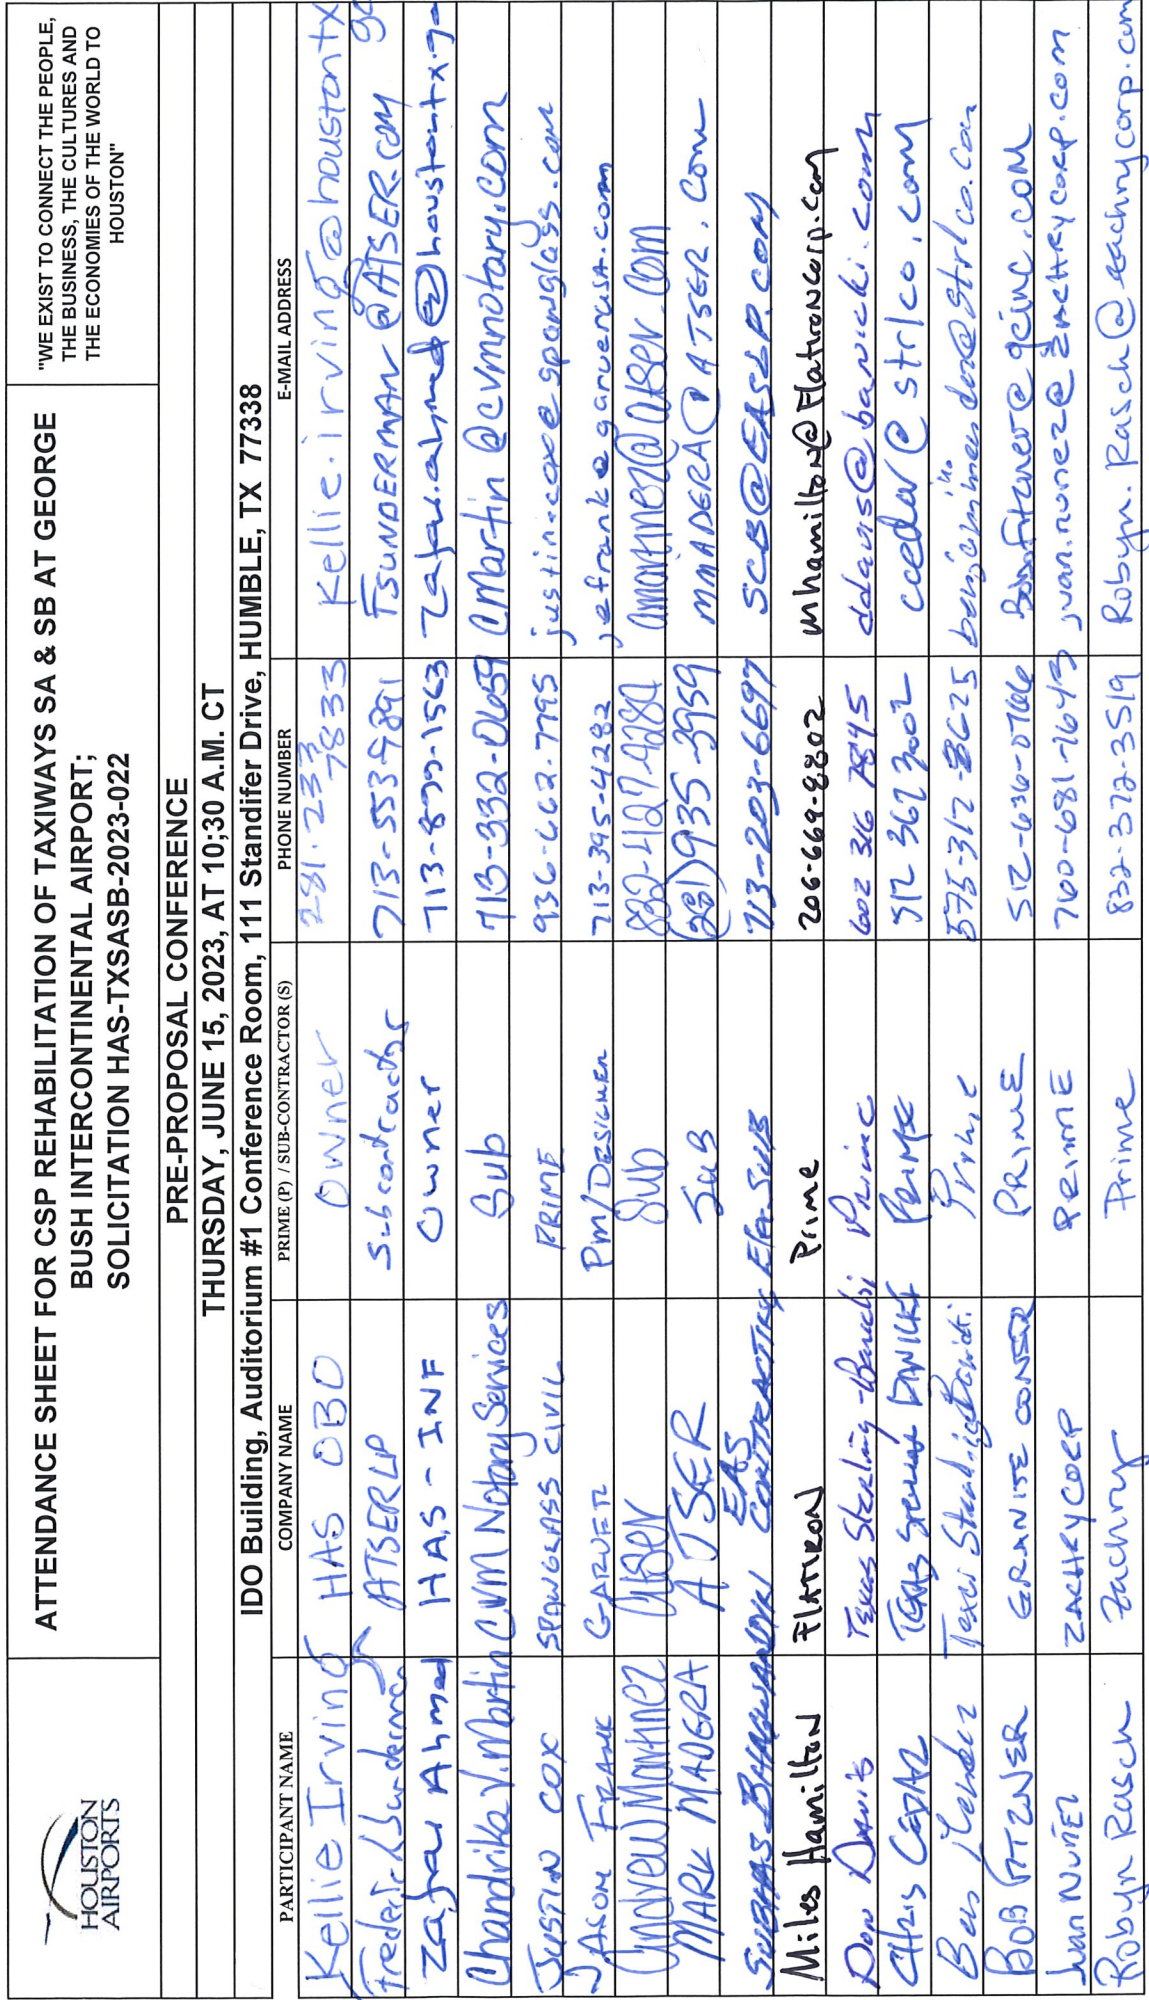 HOUSTON
AIRPORTS
ATTENDANCE SHEET FOR CSP REHABILITATION OF TAXIWAYS SA & SB AT GEORGE
BUSH INTERCONTINENTAL AIRPORT;
SOLICITATION HAS-TXSASB-2023-022
"WE EXIST TO CONNECT THE PEOPLE,
THE BUSINESS, THE CULTURES AND
THE ECONOMIES OF THE WORLD TO
HOUSTON"
PRE-PROPOSAL CONFERENCE
THURSDAY, JUNE 15, 2023, AT 10;30 A.M. CT
IDO Building, Auditorium #1 Conference Room, 111 Standifer Drive, HUMBLE, TX 77338
PARTICIPANT NAME COMPANY NAME PRIME (P) / SUB-CONTRACTOR (S) PHONE NUMBER E-MAIL ADDRESS
Kellie Irving HAS OBO Owner 281.233 7833 Kellie.irving@houstontx
Frederick Sunderman ATSER LP Subcontractor 713-553-9891 FSUNDERMAN@ATSER.COM
Zafar Ahmed HAS-INF Owner 713-899-1563 Zafar.ahmed@houstontx.go
Chandrika V. Martin CVM Notary Services Sub 713-332-0659 CMartin@cvmnotary.com
JUSTIN COX SPAWGLASS CIVIL PRIME 936-662-7795 justin.cox@spawglass.com
JASON FRANK GARVER PM/DESIGNER 713-395-4282 jefrank@garverusa.com
Andrew Martinez Atser Sub 832-427-4280 amartinez@atser.com
MARK MADERA ATSER SUB (281)935-3959 MMADERA@ATSER.COM
SUBHAS BHAGWANDIN EAS CONTRACTING 713-203-6697 SCB@EASLP.COM
Miles Hamilton FLATIRON Prime 206-669-8802 mhamilton@Flatironcorp.com
Don Davis Texas Sterling-Banicki Prime 602 316 7845 ddavis@banicki.com
Chris CEDAR PRIME 512 367 3002 ccedar@strlco.com
Ben Prime 575-312-8625
BOB FITZNER GRANITE CONSTR PRIME 512-636-0766
JUAN NUÑEZ ZACHRY CORP PRIME 760-681-1643 juan.nunez@ZACHRYCORP.COM
Robyn Rasch Zachry Prime 832-372-3519 Robyn.Rasch@zachrycorp.com